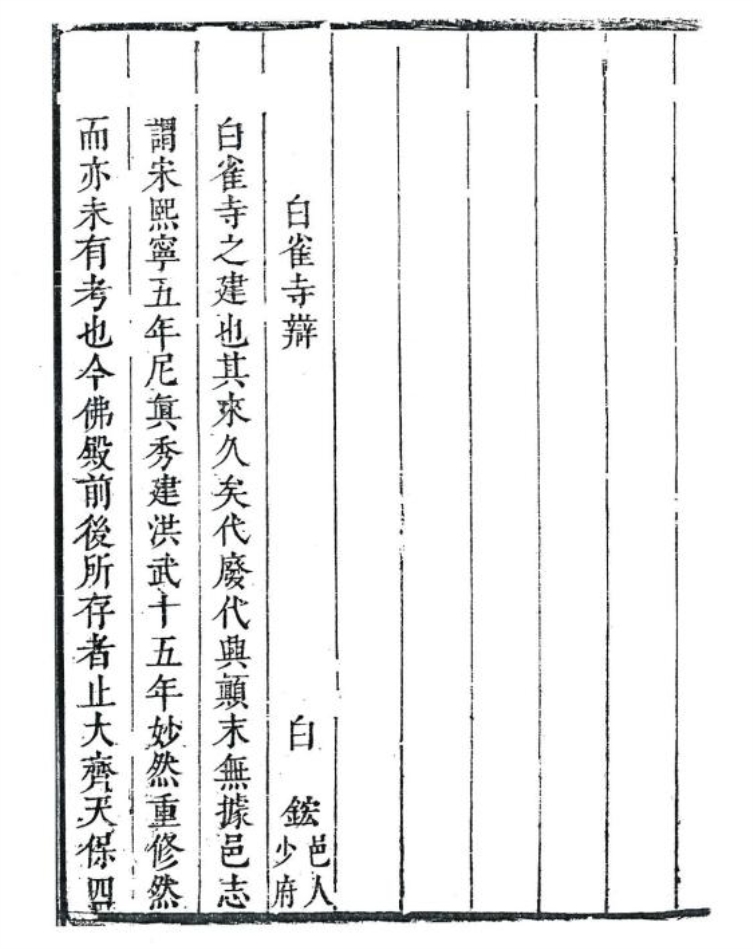 白雀寺辯　白鋐邑人少府
白雀寺之建也其來久矣代廢代興顛末無據邑志
謂宋熙寧五年尼眞秀建洪武十五年妙然重修然
而亦未有考也今佛殿前後所存者止大齊天保四